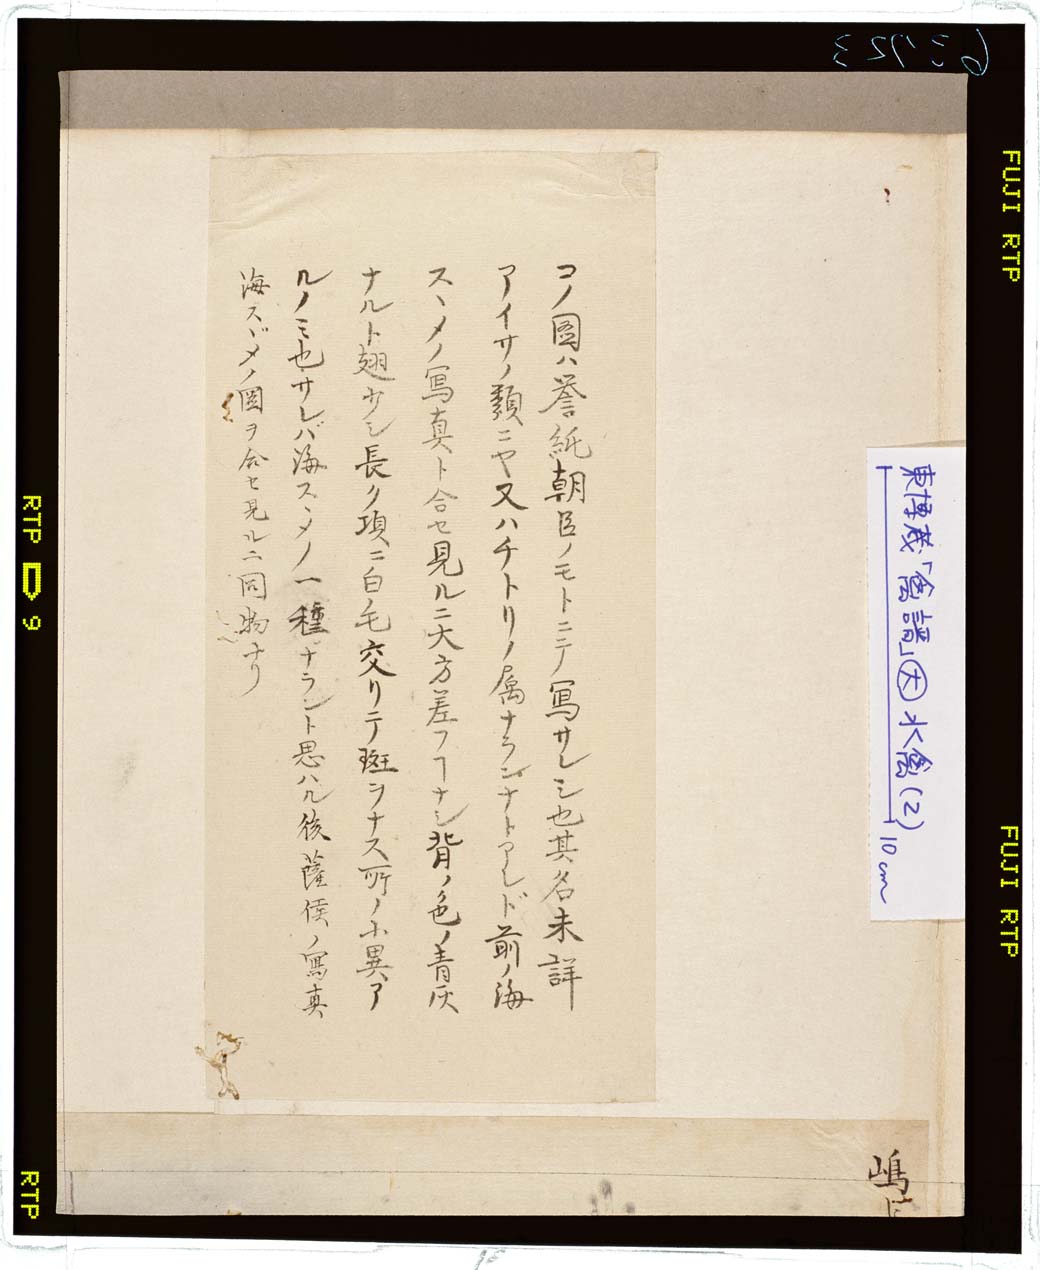 コノ圖ハ誉紙朝臣ノモトニテ寫サレシ也其名未詳
アイサノ類ニヤ又ハチトリノ属ナランナトアレド前ノ海
スヽメノ寫真ト合セ見ルニ大方差フヿナシ背ノ色ノ青灰
ナルト翅少シ長ク項ニ白毛交リテ斑ヲナス所ノ小異ア
ルノミ也サレバ海スヽメノ一種ナラント思ハル後薩侯ノ寫真
海スヾメノ圖ヲ合セ見ルニ同物ナリ
東博蔵「禽譜」大 水禽(2)
10cm
嶋
63723
FUJI RTP
FUJI RTP
RTP
9
RTP